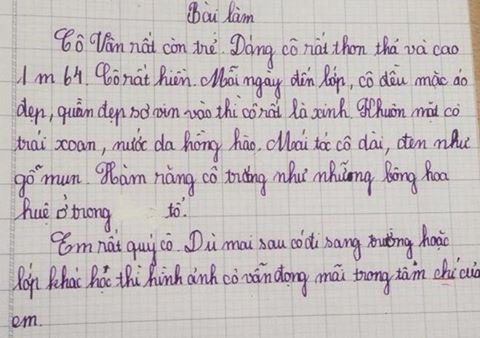 Bài làm
Cô Vân rất còn trẻ. Dáng cô rất thon thả và cao
1 m 64. Cô rất hiền. Mỗi ngày đến lớp, cô đều mặc áo
đẹp, quần đẹp sơ vin vào thì cô rất là xinh. Khuôn mặt cô
trái xoan, nước da hồng hào. Mái tóc cô dài, đen như
gỗ mun. Hàm răng cô trắng như những bông hoa
huê ở trong tổ.
Em rất quý cô. Dù mai sau cô đi sang trường hoặc
lớp khác học thì hình ảnh cô vẫn đọng mãi trong tâm chí của
em.